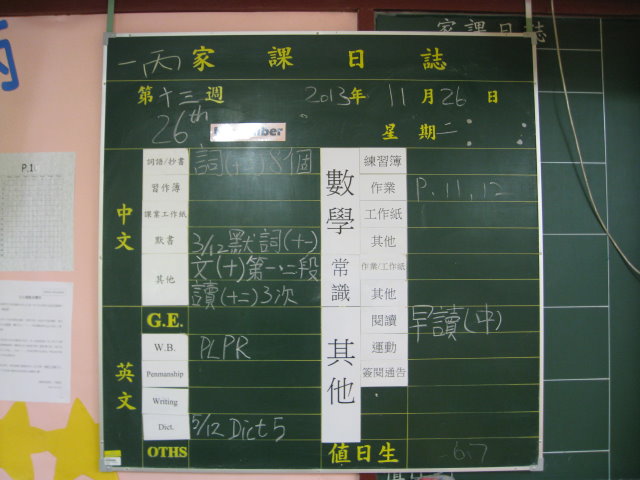 家課日誌
一丙 家課日誌
第十三週 2013年 11月26日
26th November
星期二
詞語/抄書 詞(十三)8個
習作簿
課業工作紙
中文
默書 3/12默詞(十一)
其他 文(十)第一、二段
讀(十二)3次
數學
練習簿
作業 P.11,12
工作紙
其他
常識
作業/工作紙
其他
英文
G.E.
W.B. PLPR
Penmanship
Writing
Dict. 5/12 Dict 5
OTHS
其他
閱讀 早讀(中)
運動
簽閱通告
值日生 6.7